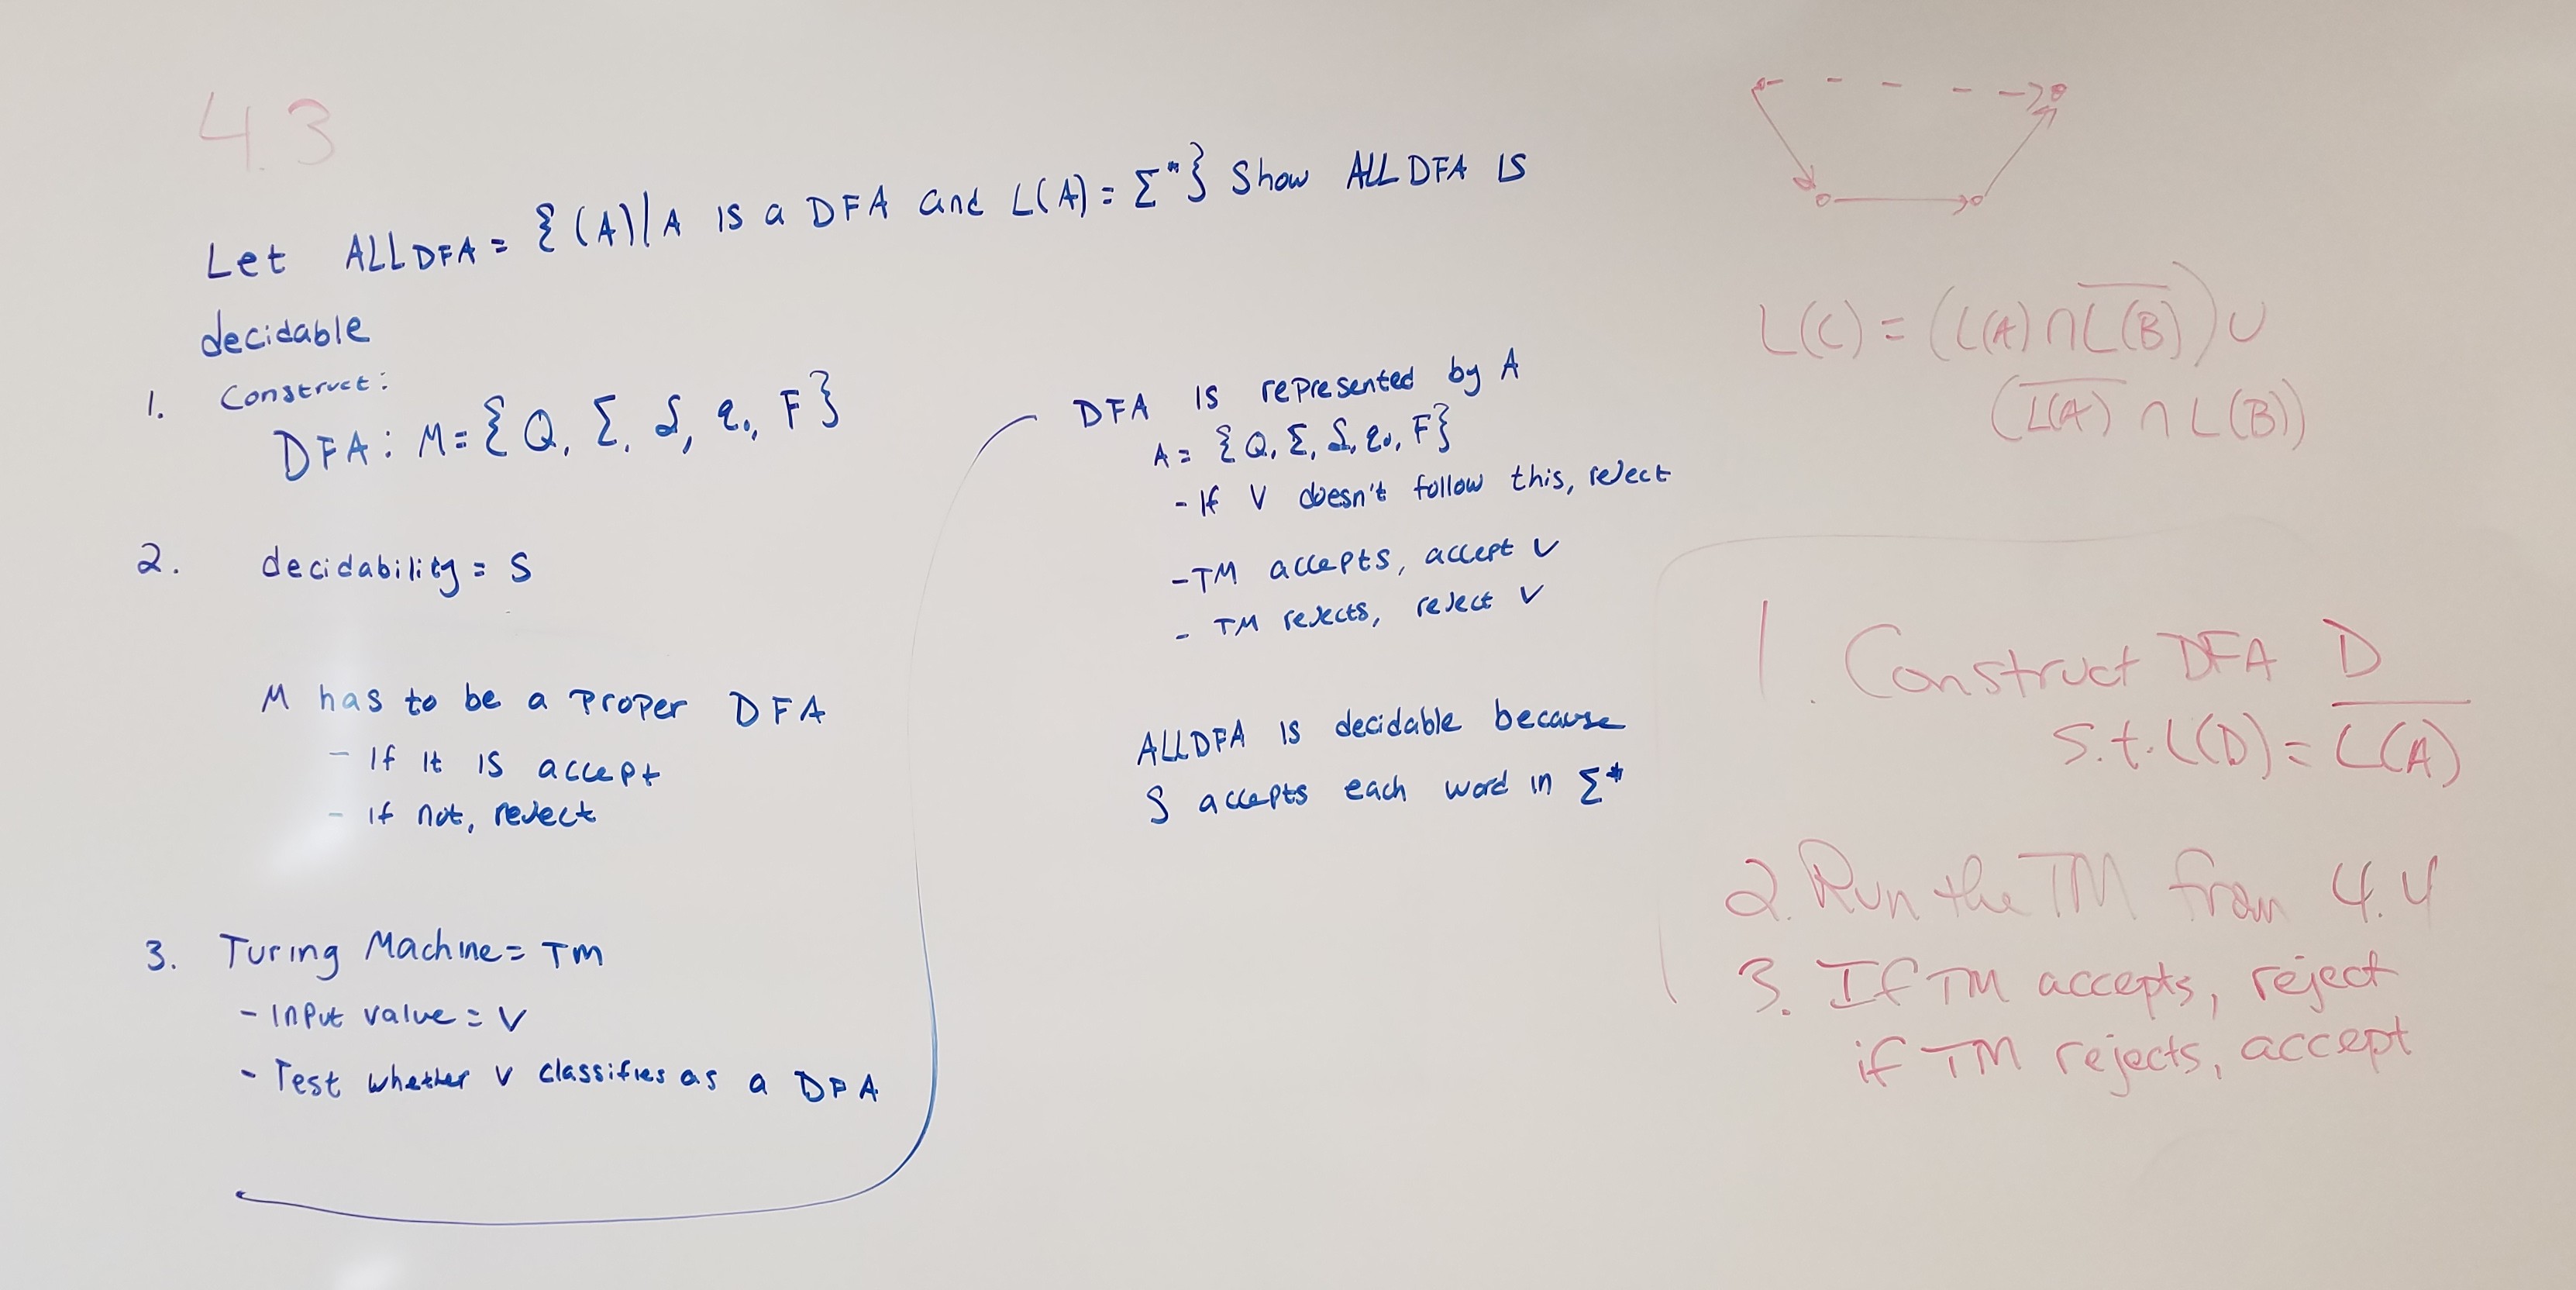 4.3
Let ALLDFA = {(A)|A is a DFA and L(A) = Σ*} Show ALLDFA is
decidable
1. Construct:
DFA: M = {Q, Σ, δ, q₀, F}
2. decidability = S
M has to be a proper DFA
- If it is accept
- if not, reject
3. Turing Machine = TM
- Input value = V
- Test whether V classifies as a DFA
DFA is represented by A
A = {Q, Σ, δ, q₀, F}
- If V doesn't follow this, reject
- TM accepts, accept V
- TM rejects, reject V
ALLDFA is decidable because
S accepts each word in Σ*
L(C) = (L(A) ∩ L̅(̅B̅)̅) ∪
(L̅(̅A̅)̅ ∩ L(B))
1. Construct DFA D
s.t. L(D) = L̅(̅A̅)̅
2. Run the TM from 4.4
3. If TM accepts, reject
if TM rejects, accept